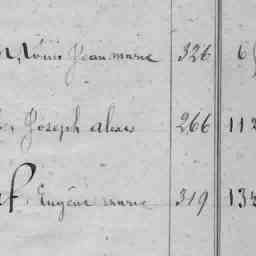 Louis Jean marie 326 6
Joseph alexis 266 112
Eugène marie 319 13